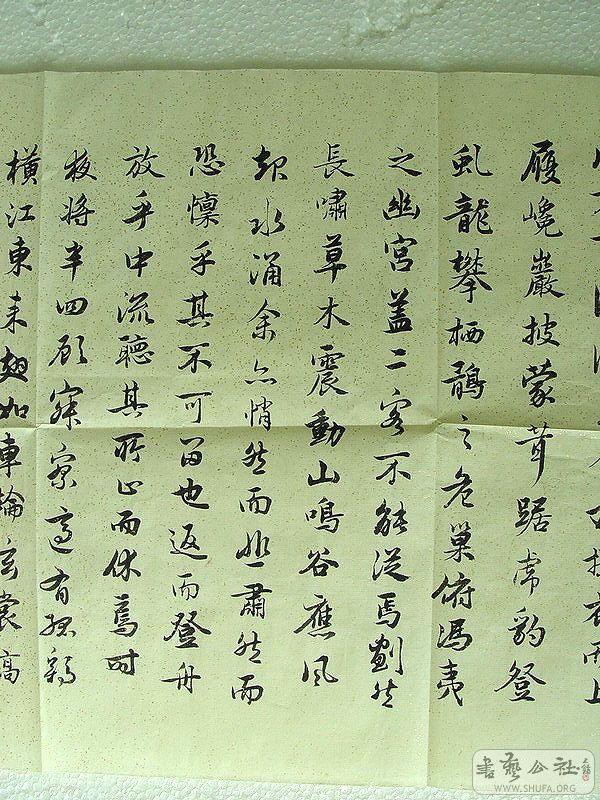 衣而上
履巉巖披蒙茸踞虎豹登
虬龍攀栖鶻之危巢俯馮夷
之幽宮蓋二客不能從焉劃然
長嘯草木震動山鳴谷應風
起水涌余亦悄然而悲肅然而
恐懍乎其不可留也返而登舟
放乎中流聽其所止而休焉時
夜將半四顧寂寥適有孤鶴
橫江東来翅如車輪玄裳縞
書藝公社
WWW.SHUFA.ORG